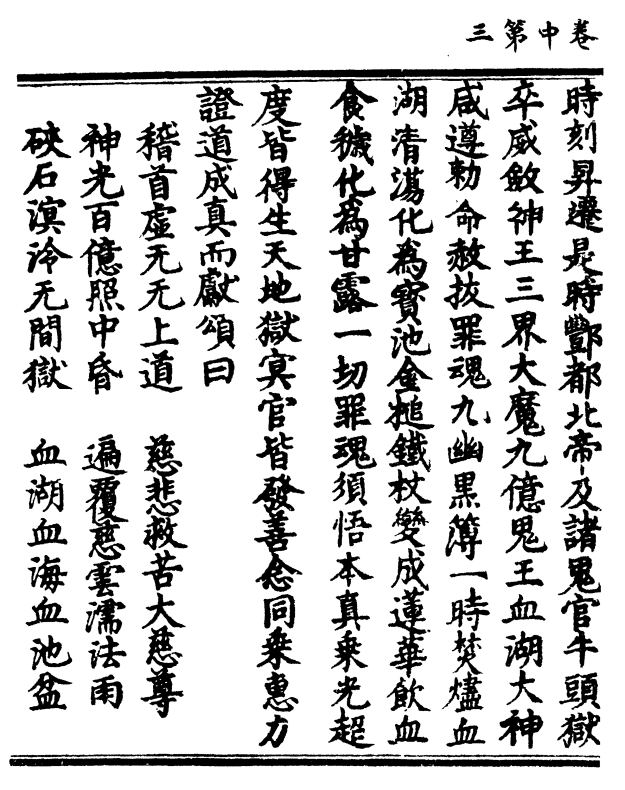 卷中第三
時刻昇遷是時酆都北帝及諸鬼官牛頭獄
卒威敛神王三界大魔九億鬼王血湖大神
咸遵勅命赦拔罪魂九幽黒簿一時焚燼血
湖清蕩化為寳池金槌鐵杖變成蓮華飲血
食穢化為甘露一切罪魂須悟本真乗光超
度皆得生天地獄冥官皆發善念同乗惠力
證道成真而獻頌曰
稽首虛无无上道 慈悲救苦大慈尊
神光百億照中昏 遍覆慈雲濡法雨
硤石溟泠无間獄 血湖血海血池盆